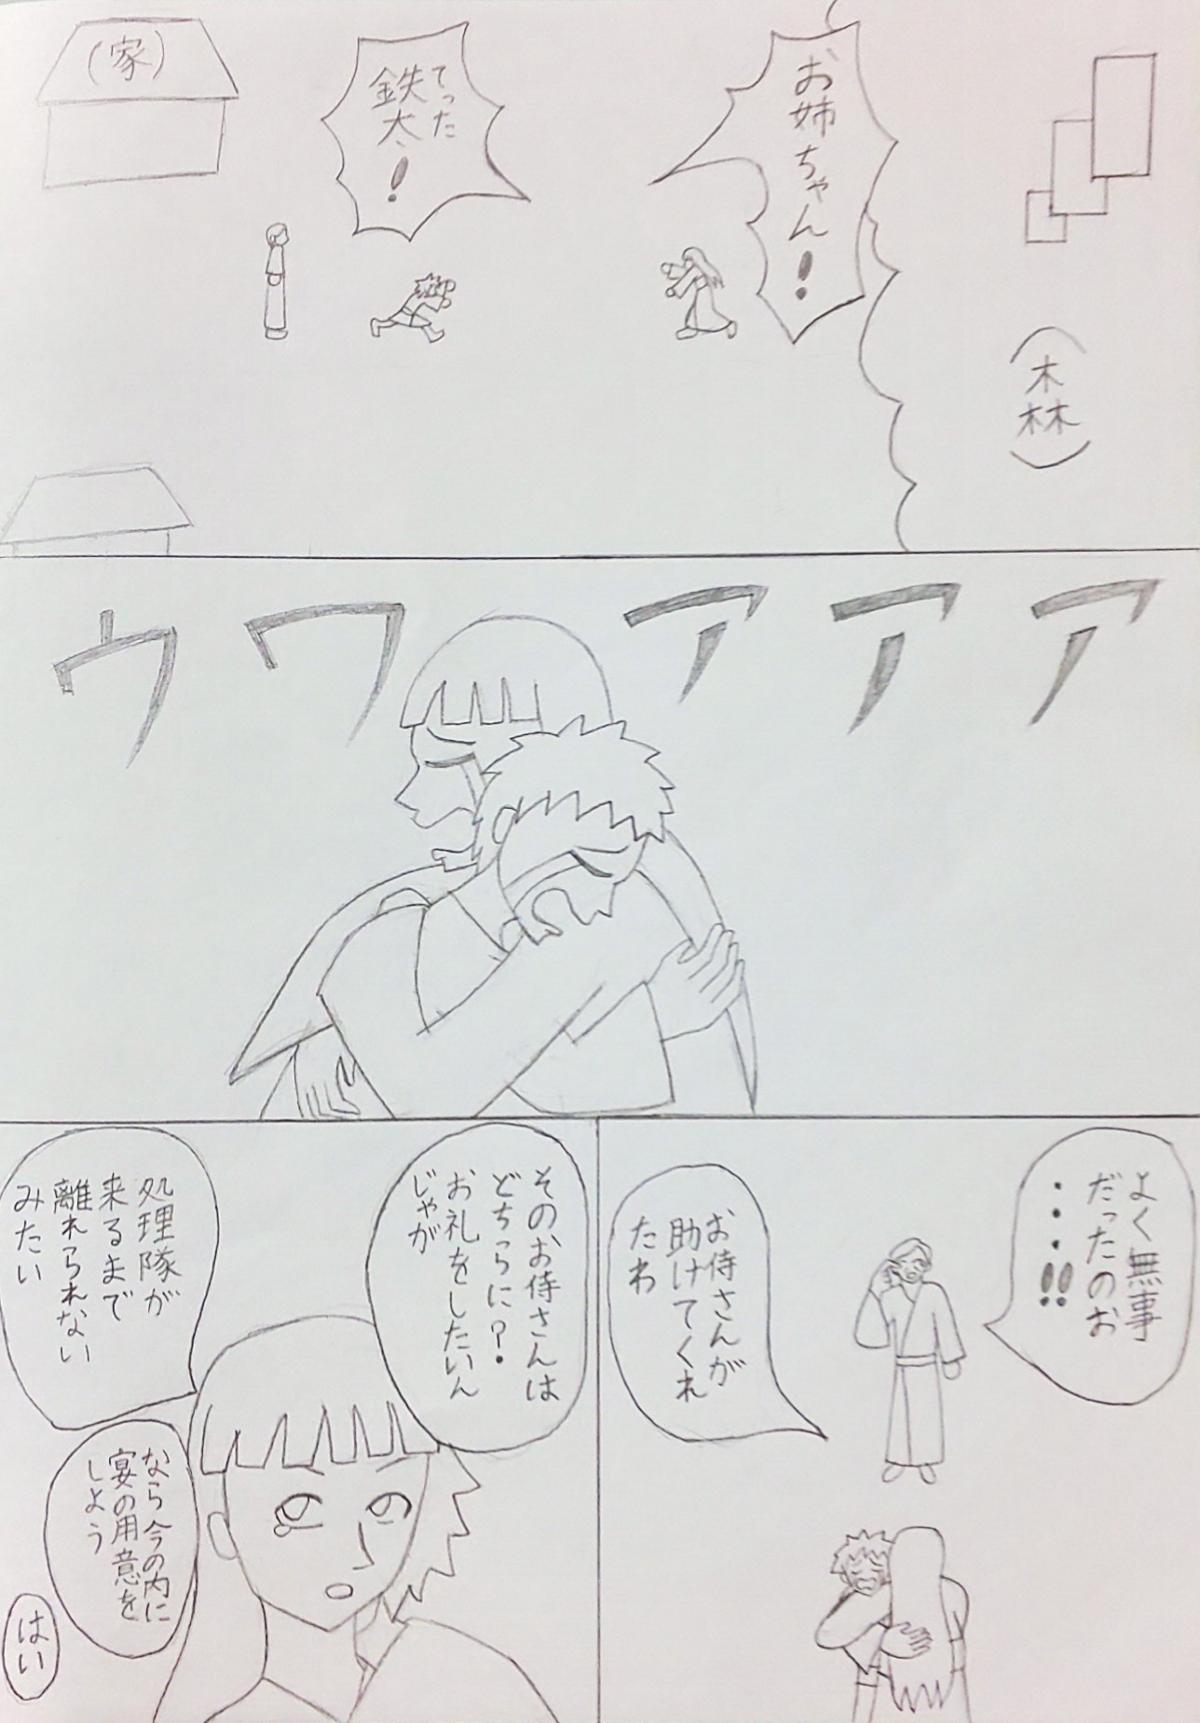 お姉ちゃん!
鉄太!
てった
(家)
(森)
ウワアアア
よく無事
だったのお
・・・・!!
お侍さんが
助けてくれ
たわ
そのお侍さんは
どちらに?
お礼をしたいん
じゃが
処理隊が
来るまで
離れられない
みたい
なら今の内に
宴の用意を
しよう
はい